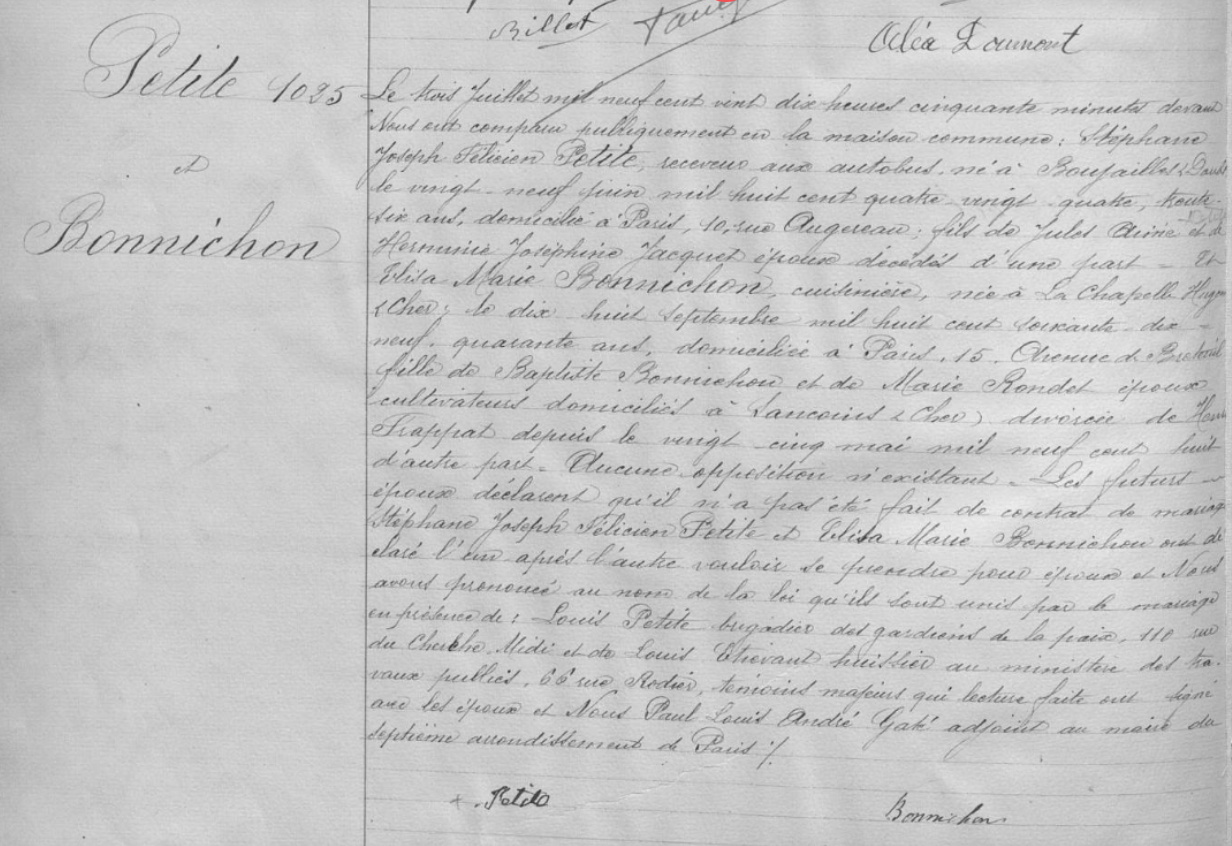 Billet
Oléa Laumont
Petite 1025
et
Bonnichon
Le trois Juillet mil neuf cent vint dix heures cinquante minutes devant
Nous ont comparu publiquement en la maison commune : Stéphane
Joseph Félicien Petite, receveur aux autobus, né à Boujailles (Doubs
le vingt-neuf juin mil huit cent quatre vingt quatre, trente-
six ans, domicilié à Paris, 10, rue Augereau ; fils de Jules Aimé et de
Herminie Joséphine Jacquet époux décédés d'une part - Et
Elisa Marie Bonnichon, cuisinière, née à La Chapelle Hugon
(Cher) le dix huit septembre mil huit cent soixante-dix-
neuf, quarante ans, domiciliée à Paris, 15, Avenue de Breteuil
fille de Baptiste Bonnichon et de Marie Rondet époux
cultivateurs domiciliés à Sancoins (Cher) divorcée de Henri
Trappat depuis le vingt-cinq mai mil neuf cent huit
d'autre part - Aucune opposition n'existant - Les futurs -
époux déclarent qu'il n'a pas été fait de contrat de mariage
Stéphane Joseph Félicien Petite et Elisa Marie Bonnichon ont dé
claré l'un après l'autre vouloir se prendre pour époux et Nous
avons prononcé au nom de la loi qu'ils sont unis par le mariage
en présence de : Louis Petite brigadier des gardiens de la paix, 110 rue
du Cherche Midi et de Louis Thevant huissier au ministère des tra-
vaux publics, 66 rue Rodier, témoins majeurs qui lecture faite ont signé
avec les époux et Nous Paul Louis André Gaté adjoint au maire du
septième arrondissement de Paris ./.
Petite
Bonnichon